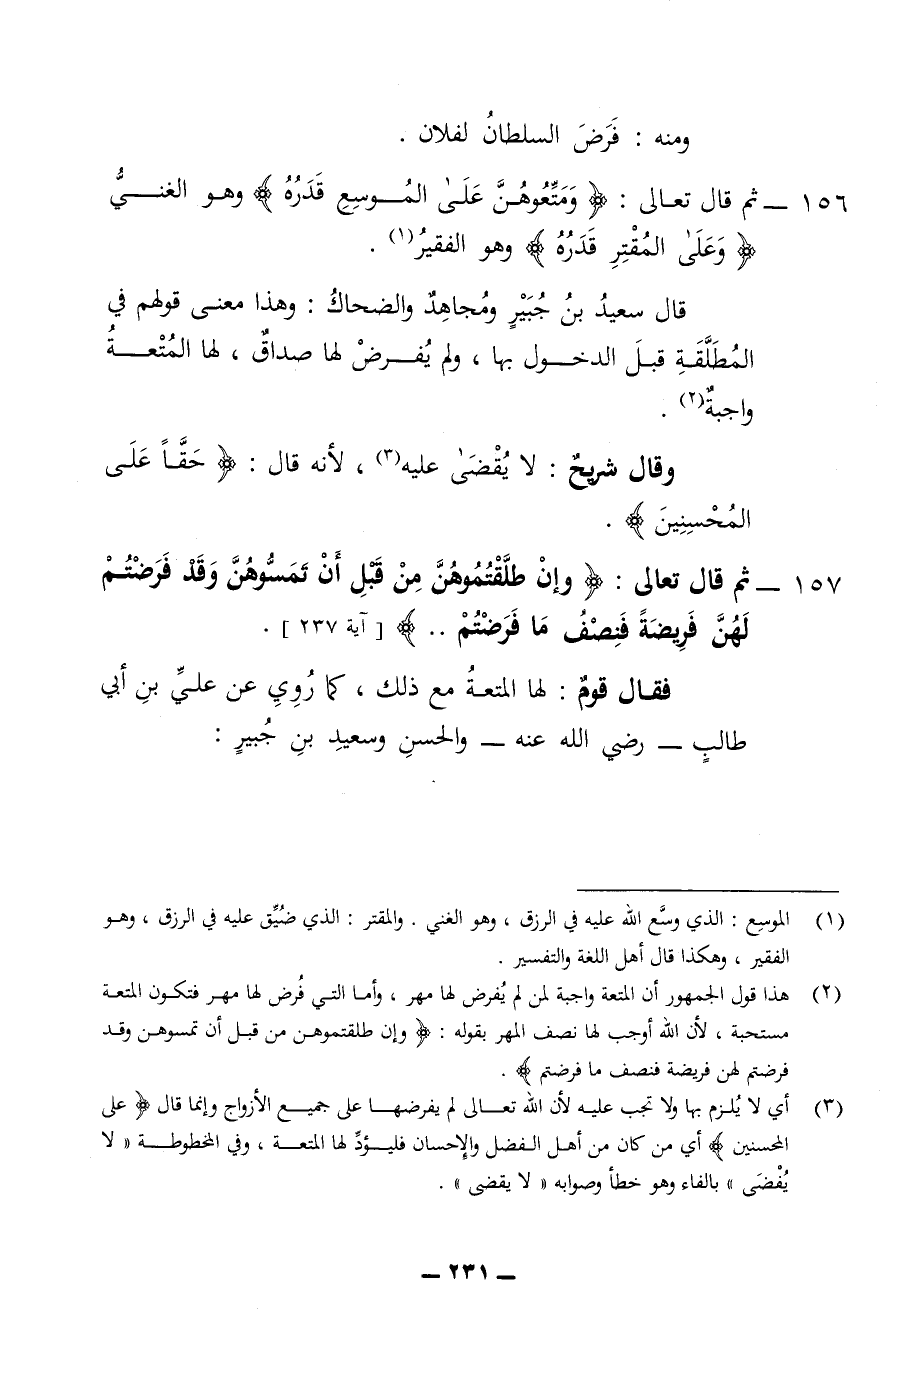 ومنه : فَرَضَ السلطانُ لفلان .
١٥٦ ــ ثم قال تعالى : ﴿ وَمَتِّعُوهُنَّ عَلَىٰ المُوسِعِ قَدَرُهُ ﴾ وهو الغنيُّ
﴿ وَعَلَىٰ المُقْتِرِ قَدَرُهُ ﴾ وهو الفقيرُ(١) .
قال سعيدُ بنُ جُبَيْرٍ ومُجاهِدٌ والضحاكُ : وهذا معنى قولهم في
المُطَلَّقَةِ قبلَ الدخول بها ، ولم يُفرضْ لها صداقٌ ، لها المُتْعةُ
واجبةٌ(٢) .
وقال شريحٌ : لا يُقْضَىٰ عليه(٣) ، لأنه قال : ﴿ حَقَّاً عَلَى
المُحْسِنِينَ ﴾ .
١٥٧ ــ ثم قال تعالى : ﴿ وإنْ طلَّقْتُمُوهُنَّ مِنْ قَبْلِ أَنْ تَمَسُّوهُنَّ وَقَدْ فَرَضْتُمْ
لَهُنَّ فَرِيضَةً فَنِصْفُ مَا فَرَضْتُمْ .. ﴾ [ آية ٢٣٧ ] .
فقال قومٌ : لها المتعةُ مع ذلك ، كما رُوِيِ عن عليِّ بنِ أبي
طالبٍ ــ رضي الله عنه ــ والحسنِ وسعيدِ بنِ جُبيرٍ :
(١) الموسِع : الذي وسَّع الله عليه في الرزق ، وهو الغني . والمقتر : الذي ضُيِّق عليه في الرزق ، وهو
الفقير ، وهكذا قال أهل اللغة والتفسير .
(٢) هذا قول الجمهور أن المتعة واجبة لمن لم يُفرض لها مهر ، وأما التي فُرض لها مهر فتكون المتعة
مستحبة ، لأن الله أوجب لها نصف المهر بقوله : ﴿ وإن طلقتموهن من قبل أن تمسوهن وقد
فرضتم لهن فريضة فنصف ما فرضتم ﴾ .
(٣) أي لا يُلزم بها ولا تجب عليه لأن الله تعالى لم يفرضها على جميع الأزواج وإنما قال ﴿ على
المحسنين ﴾ أي من كان من أهل الفضل والإحسان فليؤدِّ لها المتعة ، وفي المخطوطة « لا
يُفْضَى » بالفاء وهو خطأ وصوابه « لا يقضى » .
ــ ٢٣١ ــ